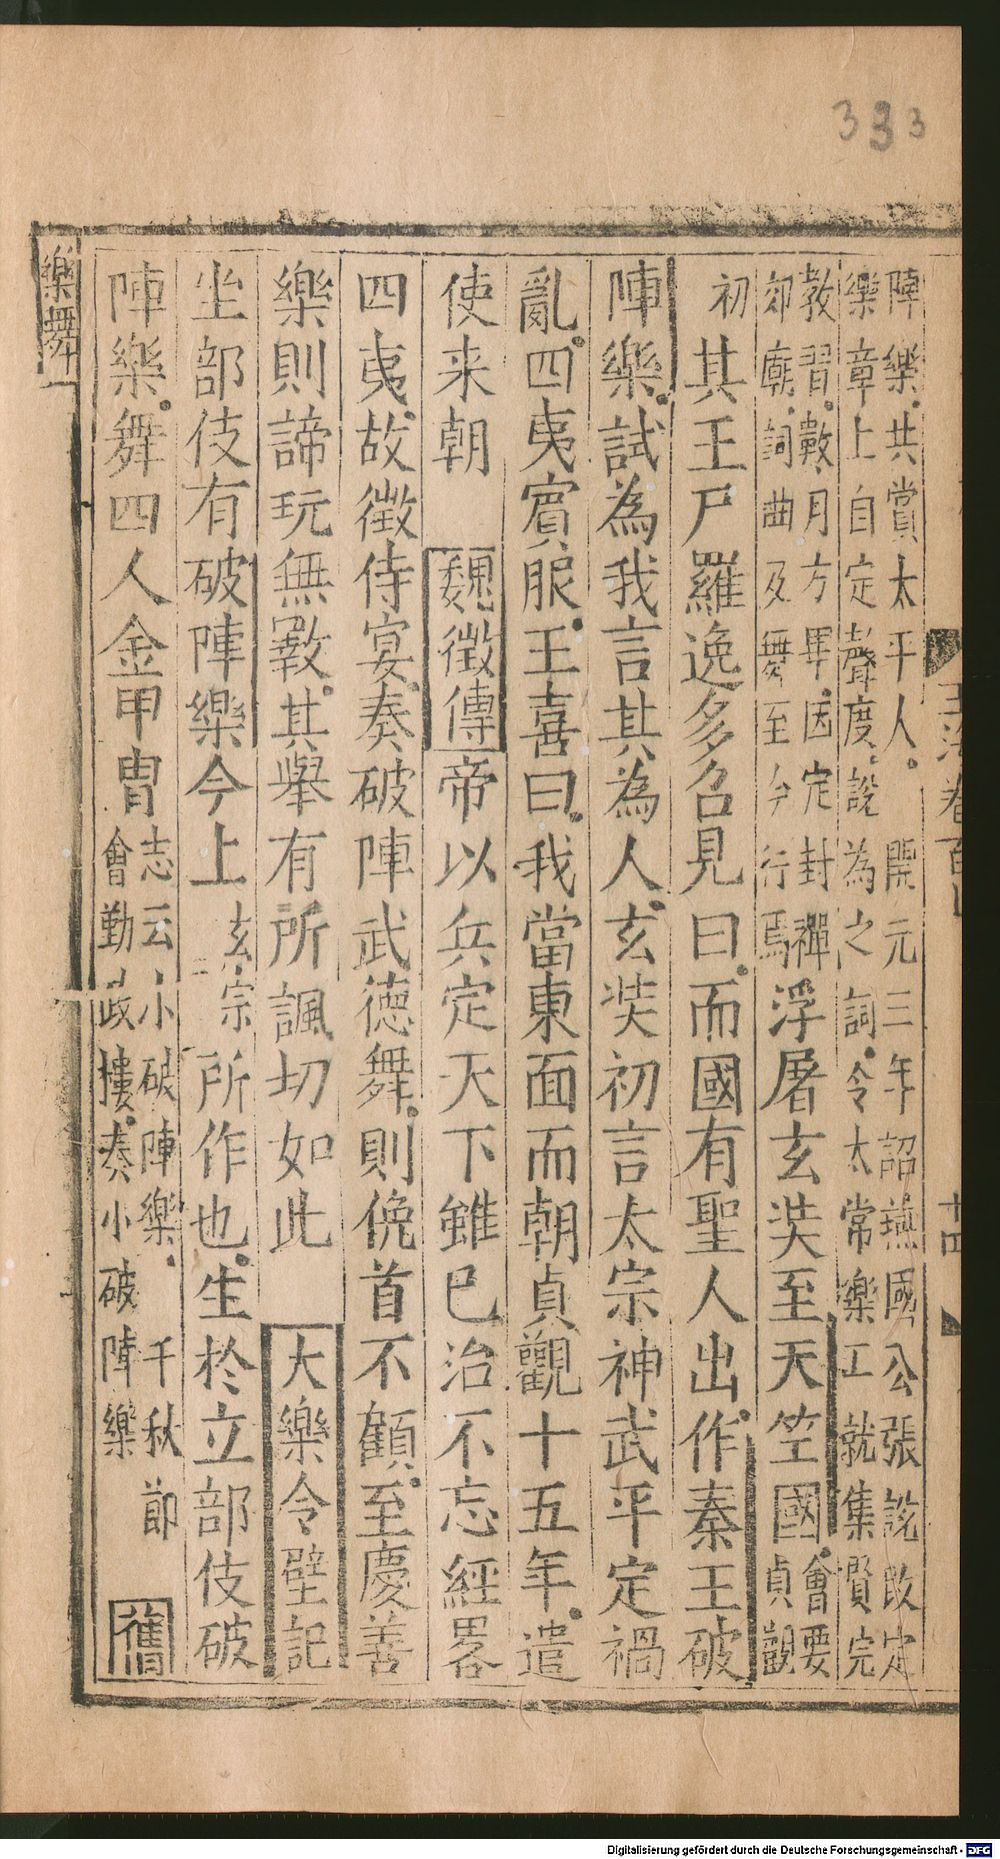 333
陣樂共賞太平人 開元三年詔燕國公張說改定
樂章上自定聲度說為之詞令太常樂工就集賢院
教習數月方畢因定封禪
郊廟詞曲及舞至今行焉
浮屠玄奘至天竺國
會要
貞觀
初其王尸羅逸多召見曰而國有聖人出作秦王破
陣樂試為我言其為人玄奘初言太宗神武平定禍
亂四夷賓服王喜曰我當東面而朝貞觀十五年遣
使来朝 魏徵傳帝以兵定天下雖已治不忘經畧
四夷故徵侍宴奏破陣武德舞則俛首不顧至慶善
樂則諦玩無斁其舉有所諷切如此 大樂令壁記
坐部伎有破陣樂今上玄宗所作也生於立部伎破
陣樂舞四人金甲冑
志云小破陣樂 千秋節
會勤政樓奏小破陣樂
舊
樂舞
玉海卷百
十四
Digitalisierung gefördert durch die Deutsche Forschungsgemeinschaft - DFG